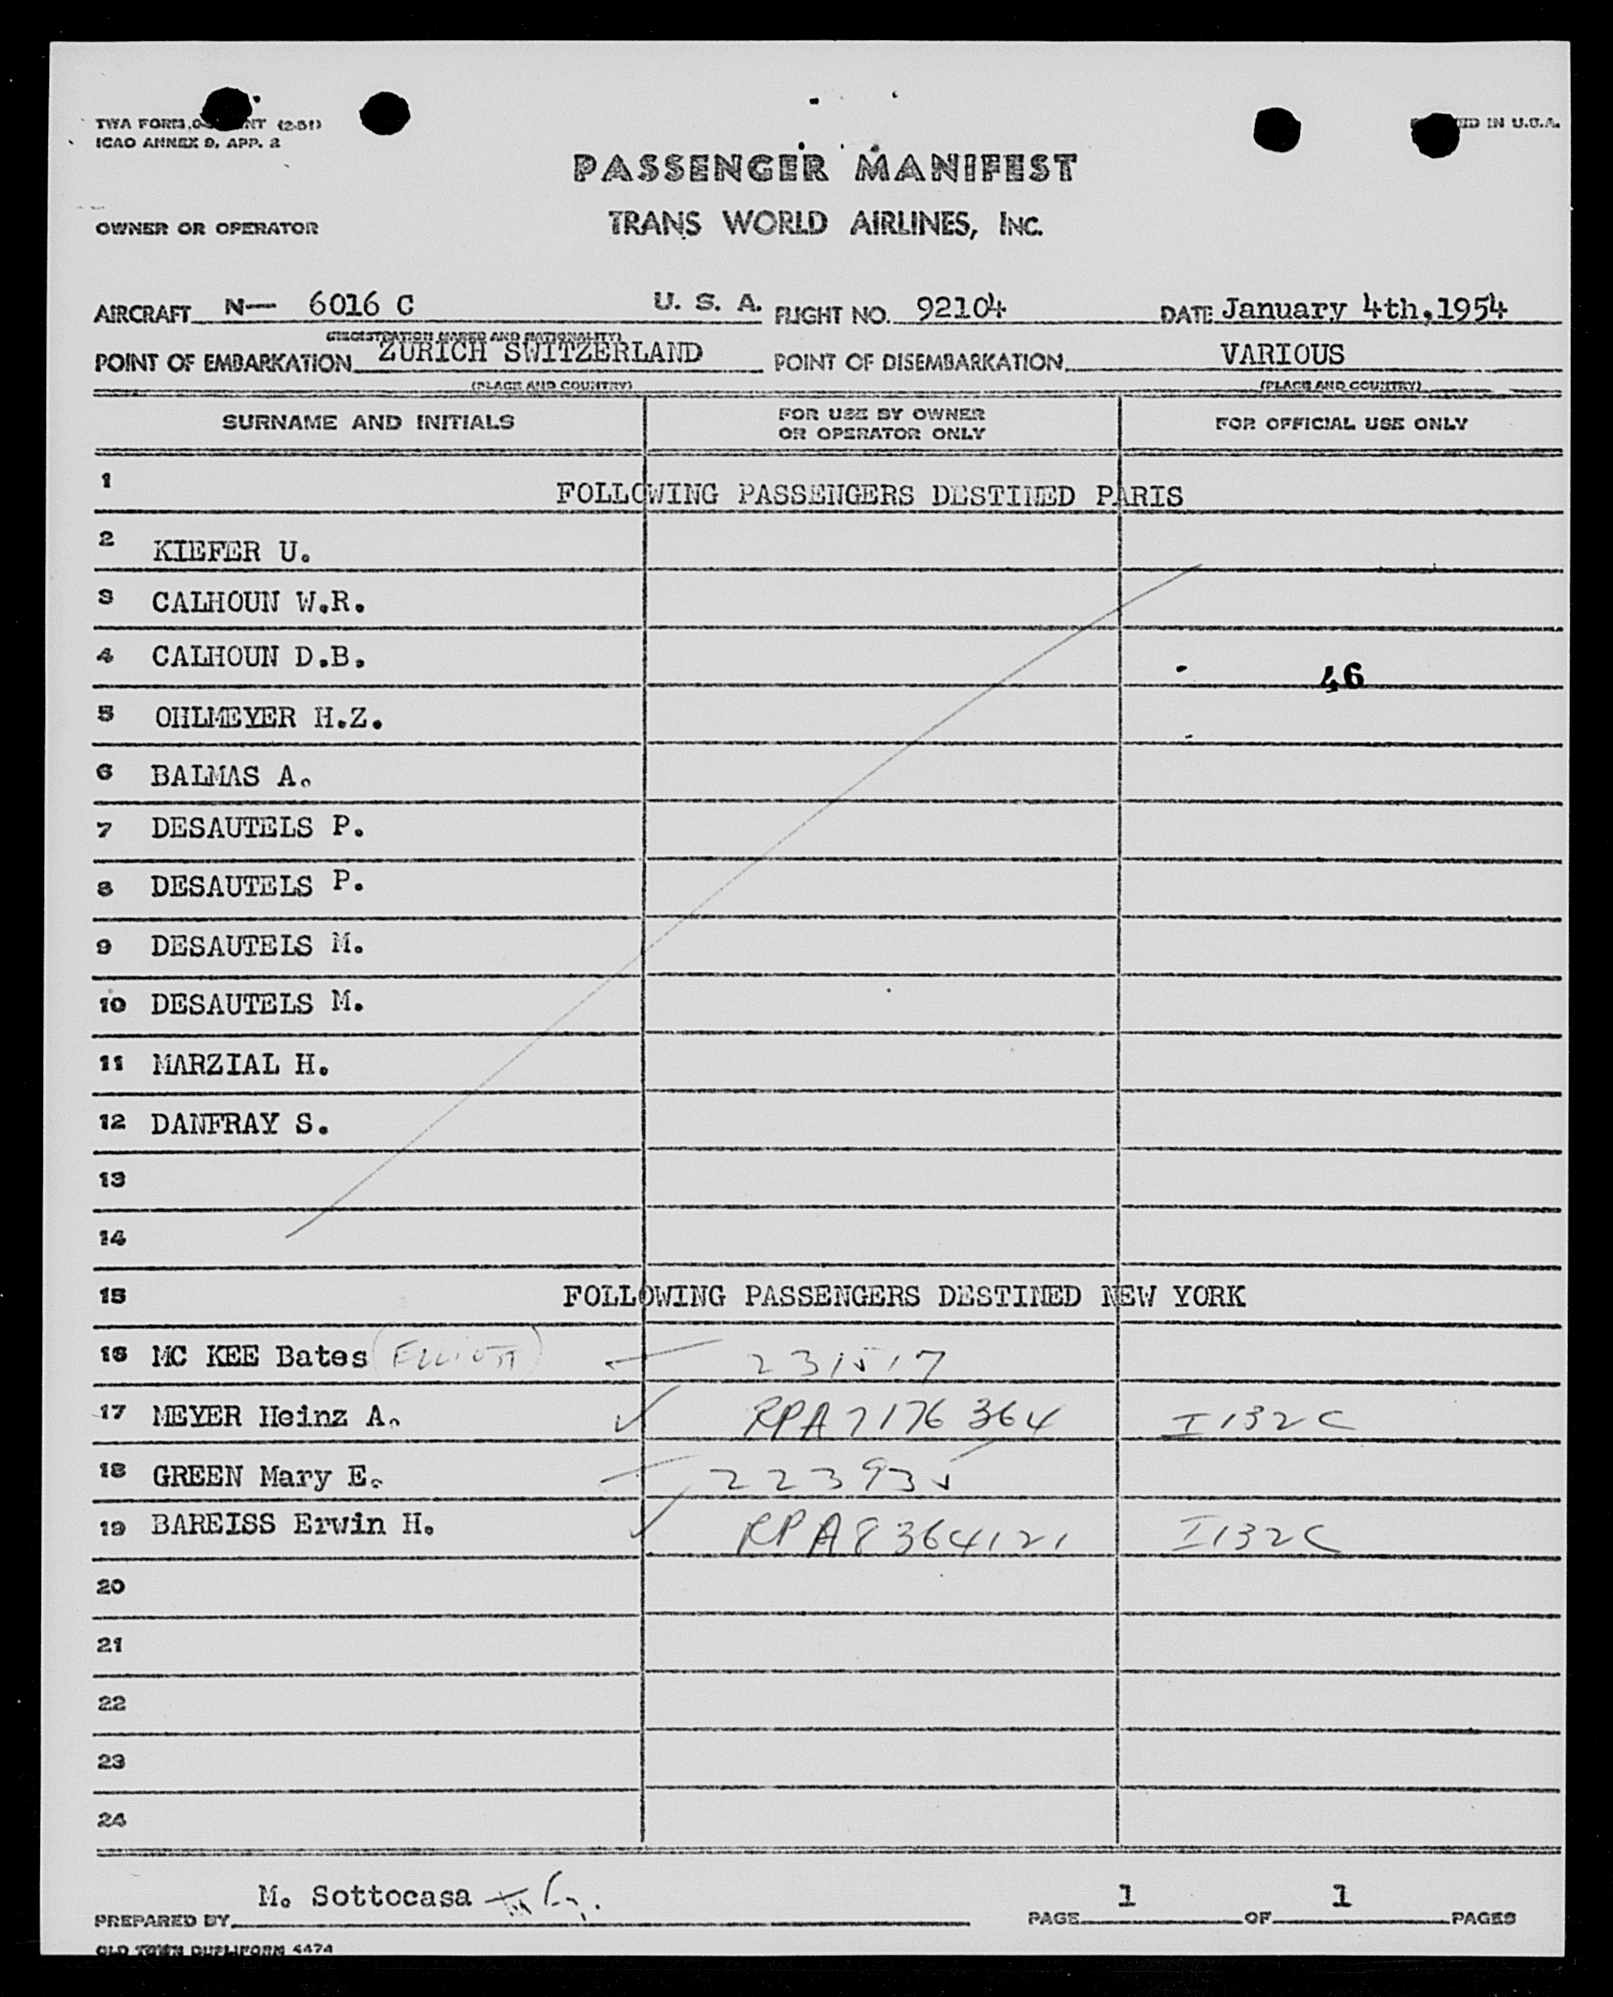 TWA FORM (2-51)
ICAO ANNEX 9, APP. 2
IN U.S.A.
PASSENGER MANIFEST
OWNER OR OPERATOR
TRANS WORLD AIRLINES, INC.
AIRCRAFT N— 6016 C U. S. A. FLIGHT NO. 92104 DATE January 4th,1954
(REGISTRATION MARKS AND NATIONALITY)
POINT OF EMBARKATION ZURICH SWITZERLAND POINT OF DISEMBARKATION VARIOUS
(PLACE AND COUNTRY) (PLACE AND COUNTRY)
SURNAME AND INITIALS FOR USE BY OWNER OR OPERATOR ONLY FOR OFFICIAL USE ONLY
1 FOLLOWING PASSENGERS DESTINED PARIS
2 KIEFER U.
3 CALHOUN W.R.
4 CALHOUN D.B. 46
5 OHLMEYER H.Z.
6 BALMAS A.
7 DESAUTELS P.
8 DESAUTELS P.
9 DESAUTELS M.
10 DESAUTELS M.
11 MARZIAL H.
12 DANFRAY S.
13
14
15 FOLLOWING PASSENGERS DESTINED NEW YORK
16 MC KEE Bates (ELLIOTT) 231517
17 MEYER Heinz A. ✓ RPA7176364 I132C
18 GREEN Mary E. 223935
19 BAREISS Erwin H. ✓ RPA8364121 I132C
20
21
22
23
24
PREPARED BY M. Sottocasa PAGE 1 OF 1 PAGES
OLD TOWN DUPLIFORM 4474